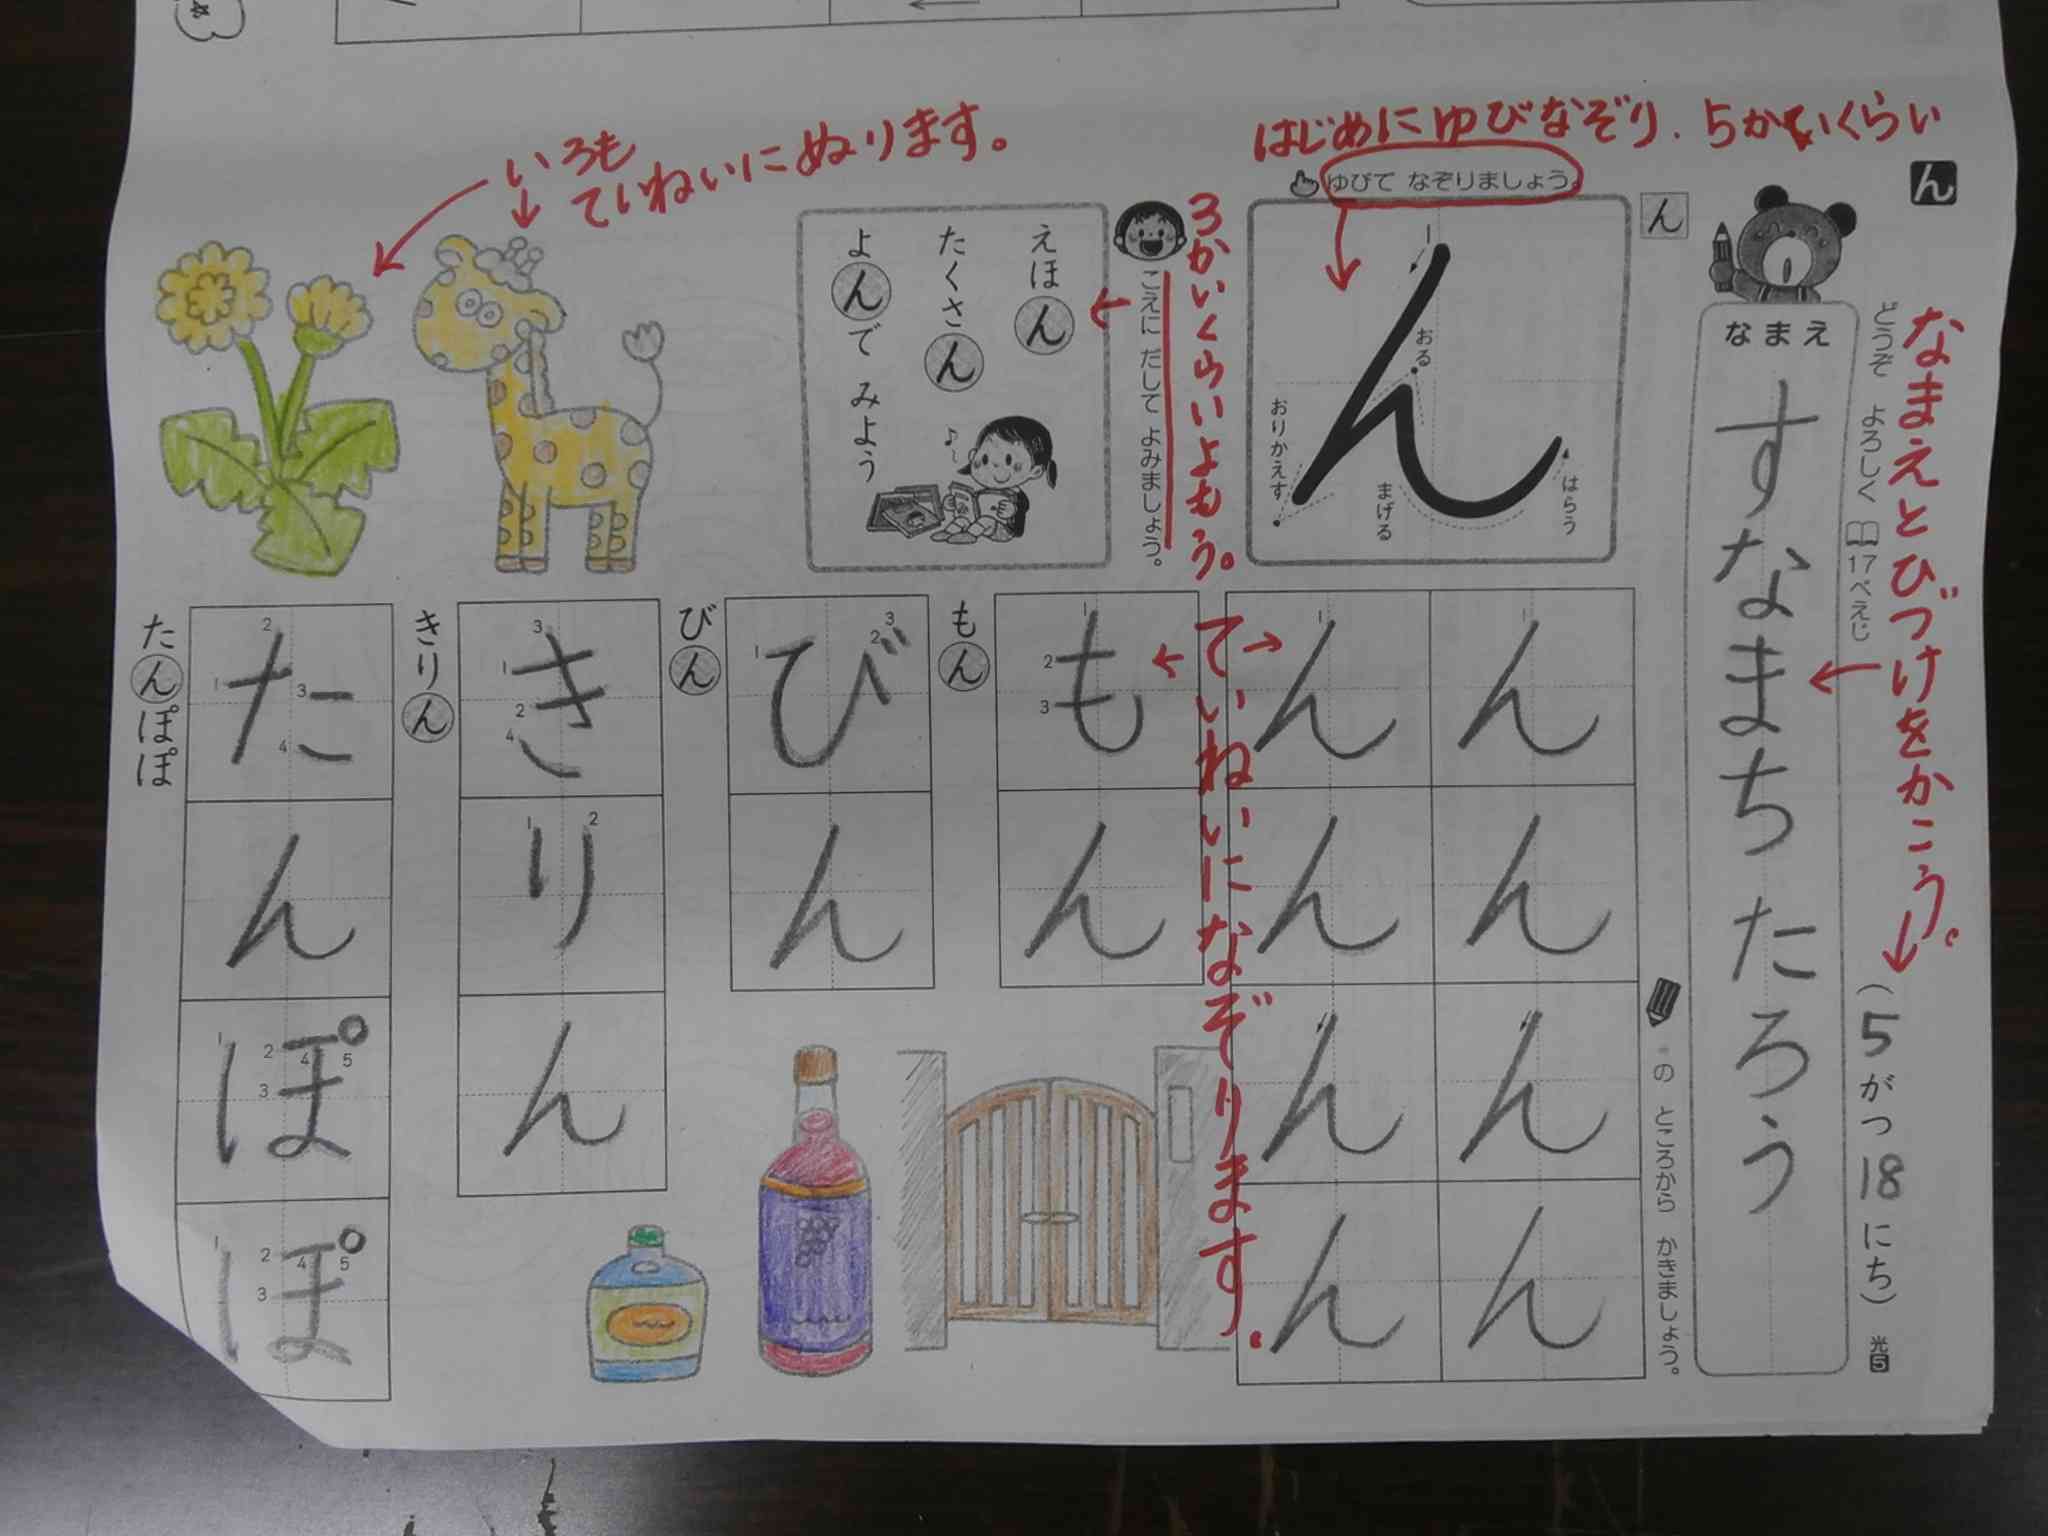 ん
なまえとひづけをかこう。
どうぞ よろしく 17ぺえじ
(5がつ18にち) 光5
なまえ
すなまち たろう
はじめにゆびなぞり.5かいくらい
ゆびで なぞりましょう。
ん
1
おる
おりかえす
まげる
はらう
3かいくらいよもう。
こえに だして よみましょう。
えほん
たくさん
よんで みよう
いろも
ていねいにぬります。
の ところから かきましょう。
1
ん
ん
ん
ん
1
ん
ん
ん
ん
ていねいになぞります。
もん
1 2 3
もん
びん
1 2 3
びん
きりん
1 2 3 4
き
1 2
り
ん
たんぽぽ
1 2 3 4
た
ん
1 2 3 4 5
ぽ
1 2 3 4 5
ぽ